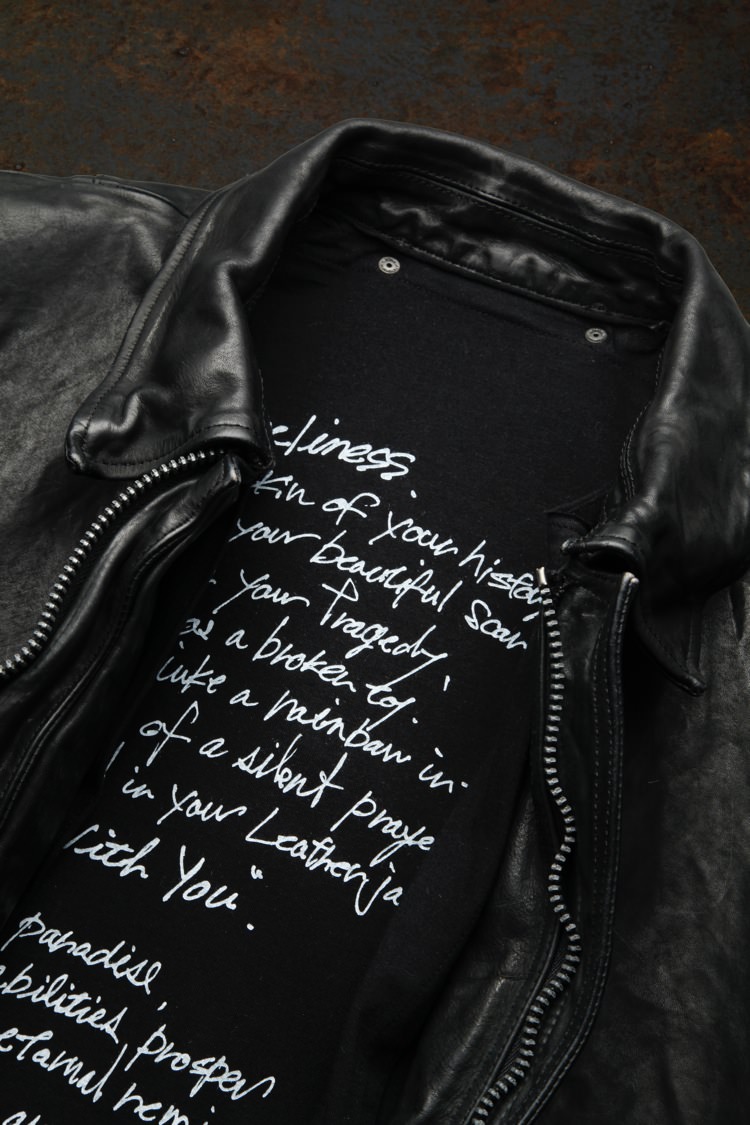 eliness.
kin of your history
your beautiful scar
your Tragedy,
as a broken toy.
like a rainbow in
of a silent praye
in your Leather ja
with You".
paradise,
bilities prosper
eternal remi